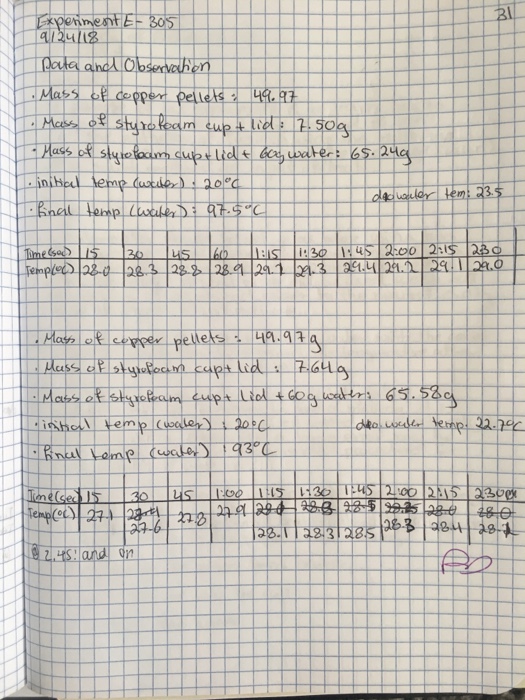 31
Experiment E-305
9/24/18
Data and Observation
• Mass of copper pellets: 49.97
• Mass of styrofoam cup + lid: 7.50g
• Mass of styrofoam cup + lid + 60g water: 65.24g
• initial temp (water): 20°C
water tem: 23.5
• Final temp (water): 97.5°C
Time(sec) 15 30 45 60 1:15 1:30 1:45 2:00 2:15 230
Temp(°C) 28.0 28.3 28.8 28.9 29.1 29.3 29.4 29.2 29.1 29.0
• Mass of copper pellets: 49.97g
• Mass of styrofoam cup + lid: 7.64g
• Mass of styrofoam cup + lid + 60g water: 65.58g
• initial temp (water): 20°C water temp. 22.7°C
• Final temp (water): 93°C
Time(sec) 15 30 45 1:00 1:15 1:30 1:45 2:00 2:15 2:30
Temp(°C) 27.1 27.8 27.9 28.3 28.5 28.0 28.0
27.6 28.1 28.3 28.5 28.3 28.4 28.2
@ 2.45! and on